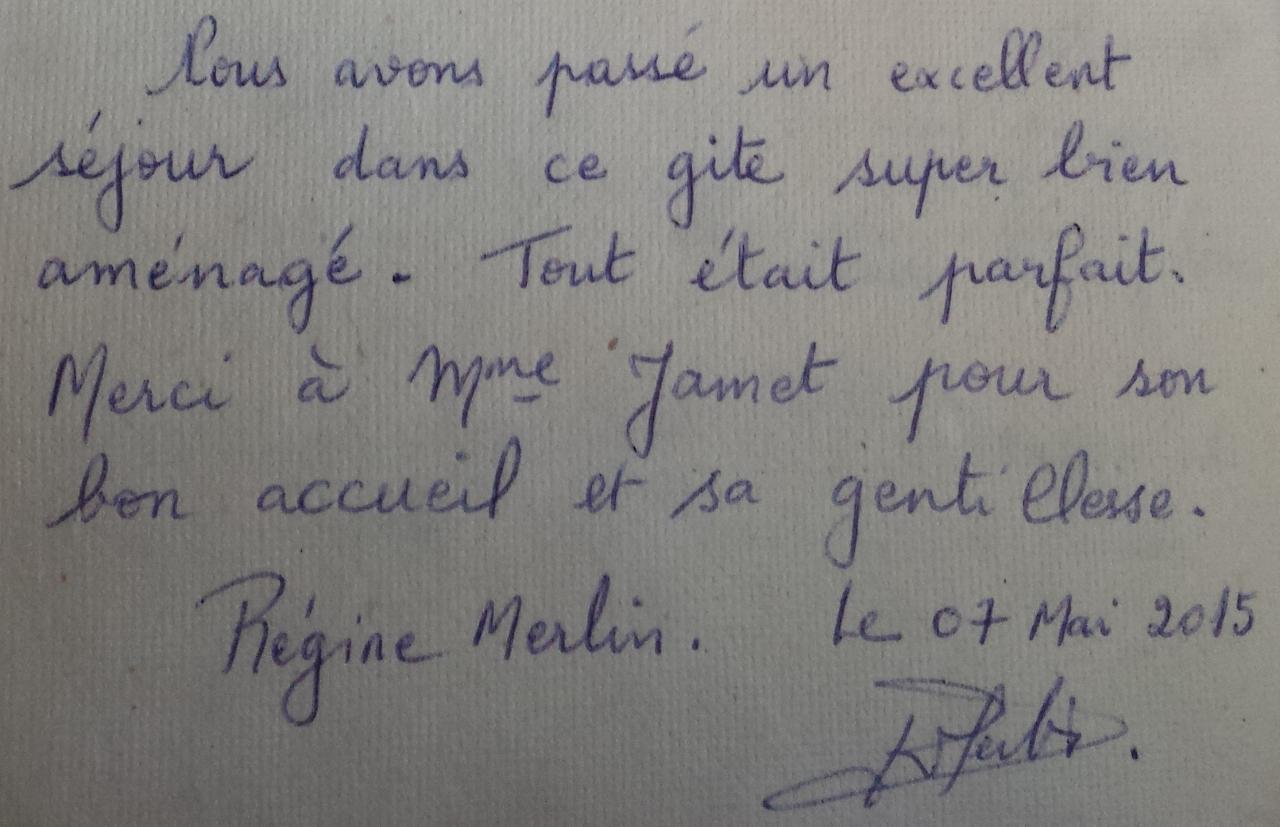 Nous avons passé un excellent
séjour dans ce gite super bien
aménagé. Tout était parfait.
Merci à Mme Jamet pour son
bon accueil et sa gentillesse.
Régine Merlin. Le 07 Mai 2015